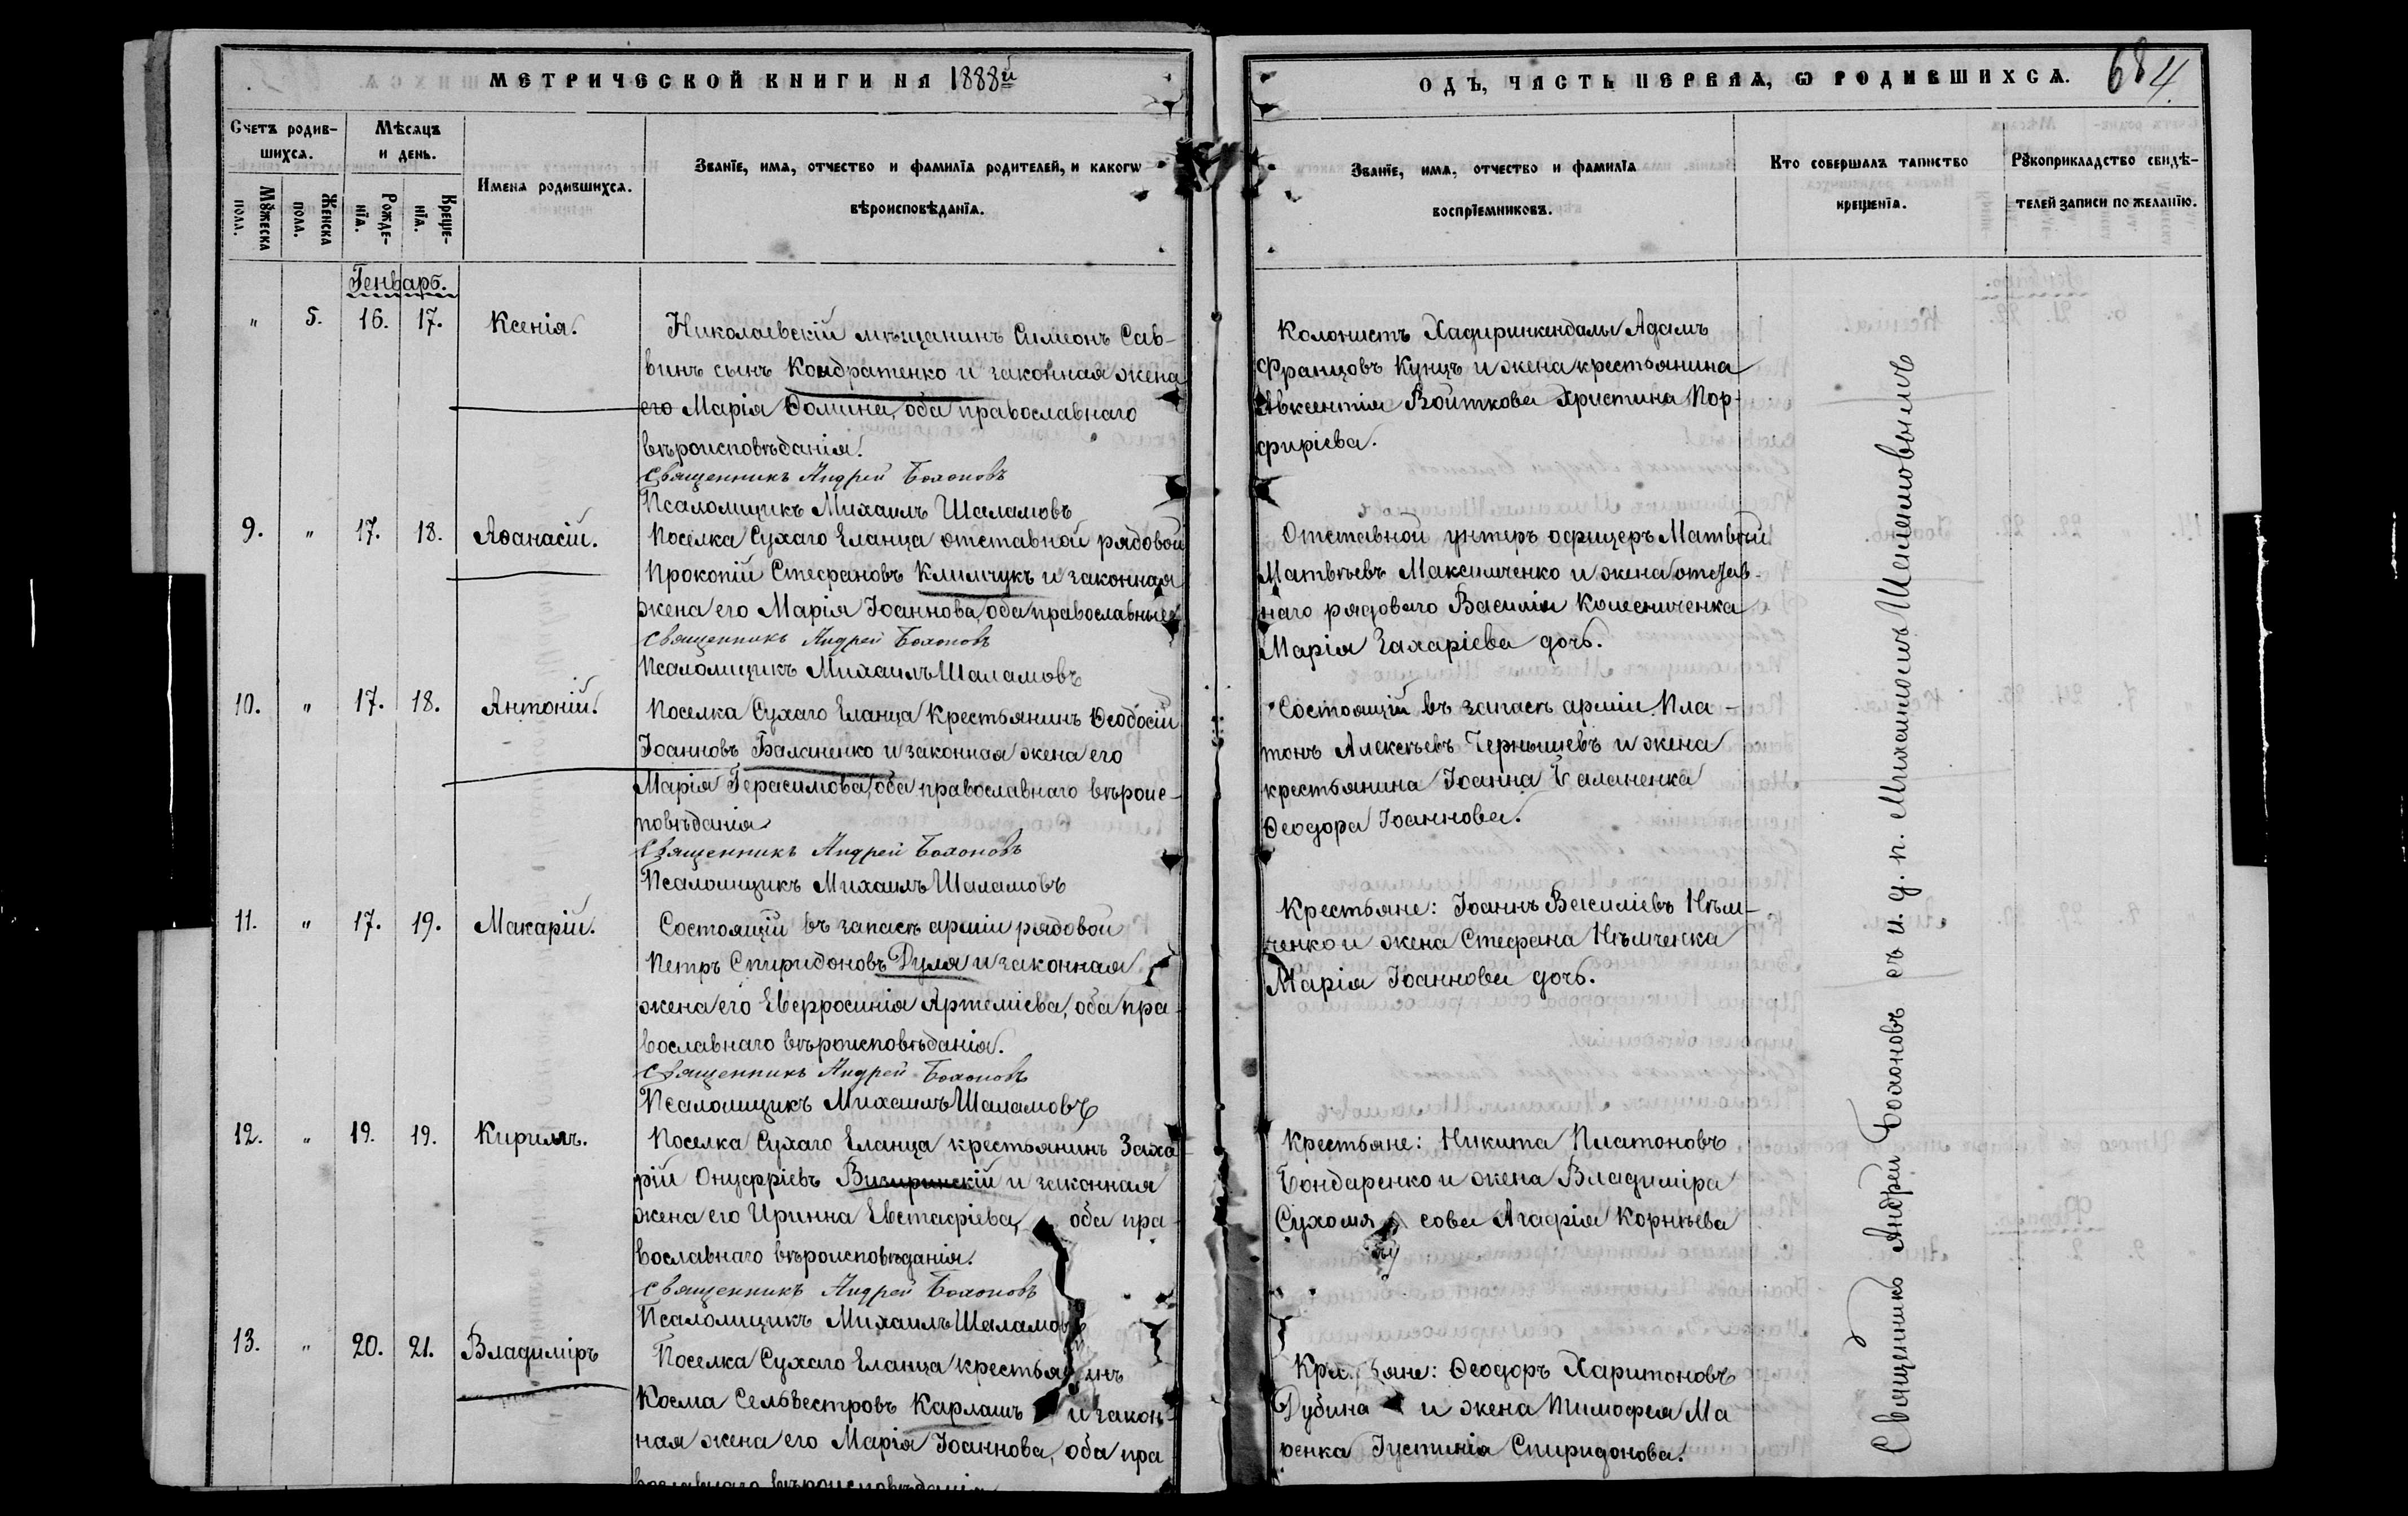 МЕТРИЧЕСКОЙ КНИГИ НА 1888й
Счетъ родив-
шихся.
Мѣсяцъ
и день.
Мꙋжеска
пола.
Женска
пола.
Рожде-
нїа.
Креще-
нїа.
Имена родившихся.
Званїе, имя, отчество и фамилїа родителей, и какогѡ
вѣроисповѣданїа.
Генварь.
" 5. 16. 17. Ксенія.
Николаевскій мѣщанинъ Симеонъ Сав-
винъ сынъ Кондратенко и законная жена
его Марія Ѳомина, оба православнаго
вѣроисповѣданія.
Священникъ Андрей
Псаломщикъ Михаилъ Шаламовъ
9. " 17. 18. Аѳанасій.
Поселка Сухаго Еланца отставной рядовой
Прокопій Стефановъ Климчукъ и законная
жена его Марія Іоаннова, оба православные
Священникъ Андрей
Псаломщикъ Михаилъ Шаламовъ
10. " 17. 18. Антоній.
Поселка Сухаго Еланца крестьянинъ Ѳеодосій
Іоанновъ Баланенко и законная жена его
Марія Герасимова, оба православнаго вѣроис-
повѣданія
Священникъ Андрей
Псаломщикъ Михаилъ Шаламовъ
11. " 17. 19. Макарій.
Состоящій въ запасѣ арміи рядовой
Петръ Спиридоновъ Дуля и законная
жена его Евфросинія Артеміева, оба пра-
вославнаго вѣроисповѣданія.
Священникъ Андрей
Псаломщикъ Михаилъ Шаламовъ
12. " 19. 19. Кириллъ.
Поселка Сухаго Еланца крестьянинъ Заха-
рій Онуфріевъ Визиринскій и законная
жена его Иринна Евстафіева, оба пра-
вославнаго вѣроисповѣданія.
Священникъ Андрей
Псаломщикъ Михаилъ Шаламовъ
13. " 20. 21. Владиміръ
Поселка Сухаго Еланца крестьянинъ
Косма Сельвестровъ Карлашъ и закон-
ная жена его Марія Іоаннова, оба пра
вославнаго вѣроисповѣданія
ОДЪ, ЧАСТЬ ПЕРВАЯ, Ѡ РОДИВШИХСЯ.
684.
Званїе, имя, отчество и фамилїа
воспрїемниковъ.
Кто совершалъ таинство
крещенїа.
Рꙋкоприкладство свидѣ-
телей записи по желанїю.
Колонистъ Адамъ
Францовъ Кунцъ и жена крестьянина
Авксентія Войткова Христина Пор-
фиріева.
Отставной унтеръ офицеръ Матвѣй
Матвѣевъ Максимченко и жена отстав-
наго рядоваго Василія Колесниченка
Марія Захаріева дочь.
Состоящій въ запасѣ арміи Пла-
тонъ Алексѣевъ Чернышевъ и жена
крестьянина Іоанна Баланенка
Ѳеодора Іоаннова.
Крестьяне: Іоаннъ Василіевъ Нѣм-
ченко и жена Стефана Нѣмченка
Марія Іоаннова дочь.
Крестьяне: Никита Платоновъ
Бондаренко и жена Владиміра
Агафія Корнѣева
Ѳеодоръ Харитоновъ
Дубина и жена Тимофея Ма
Іустинія Спиридонова.
Священникъ Андрей съ и. д. п. Михаиломъ Шаламовымъ